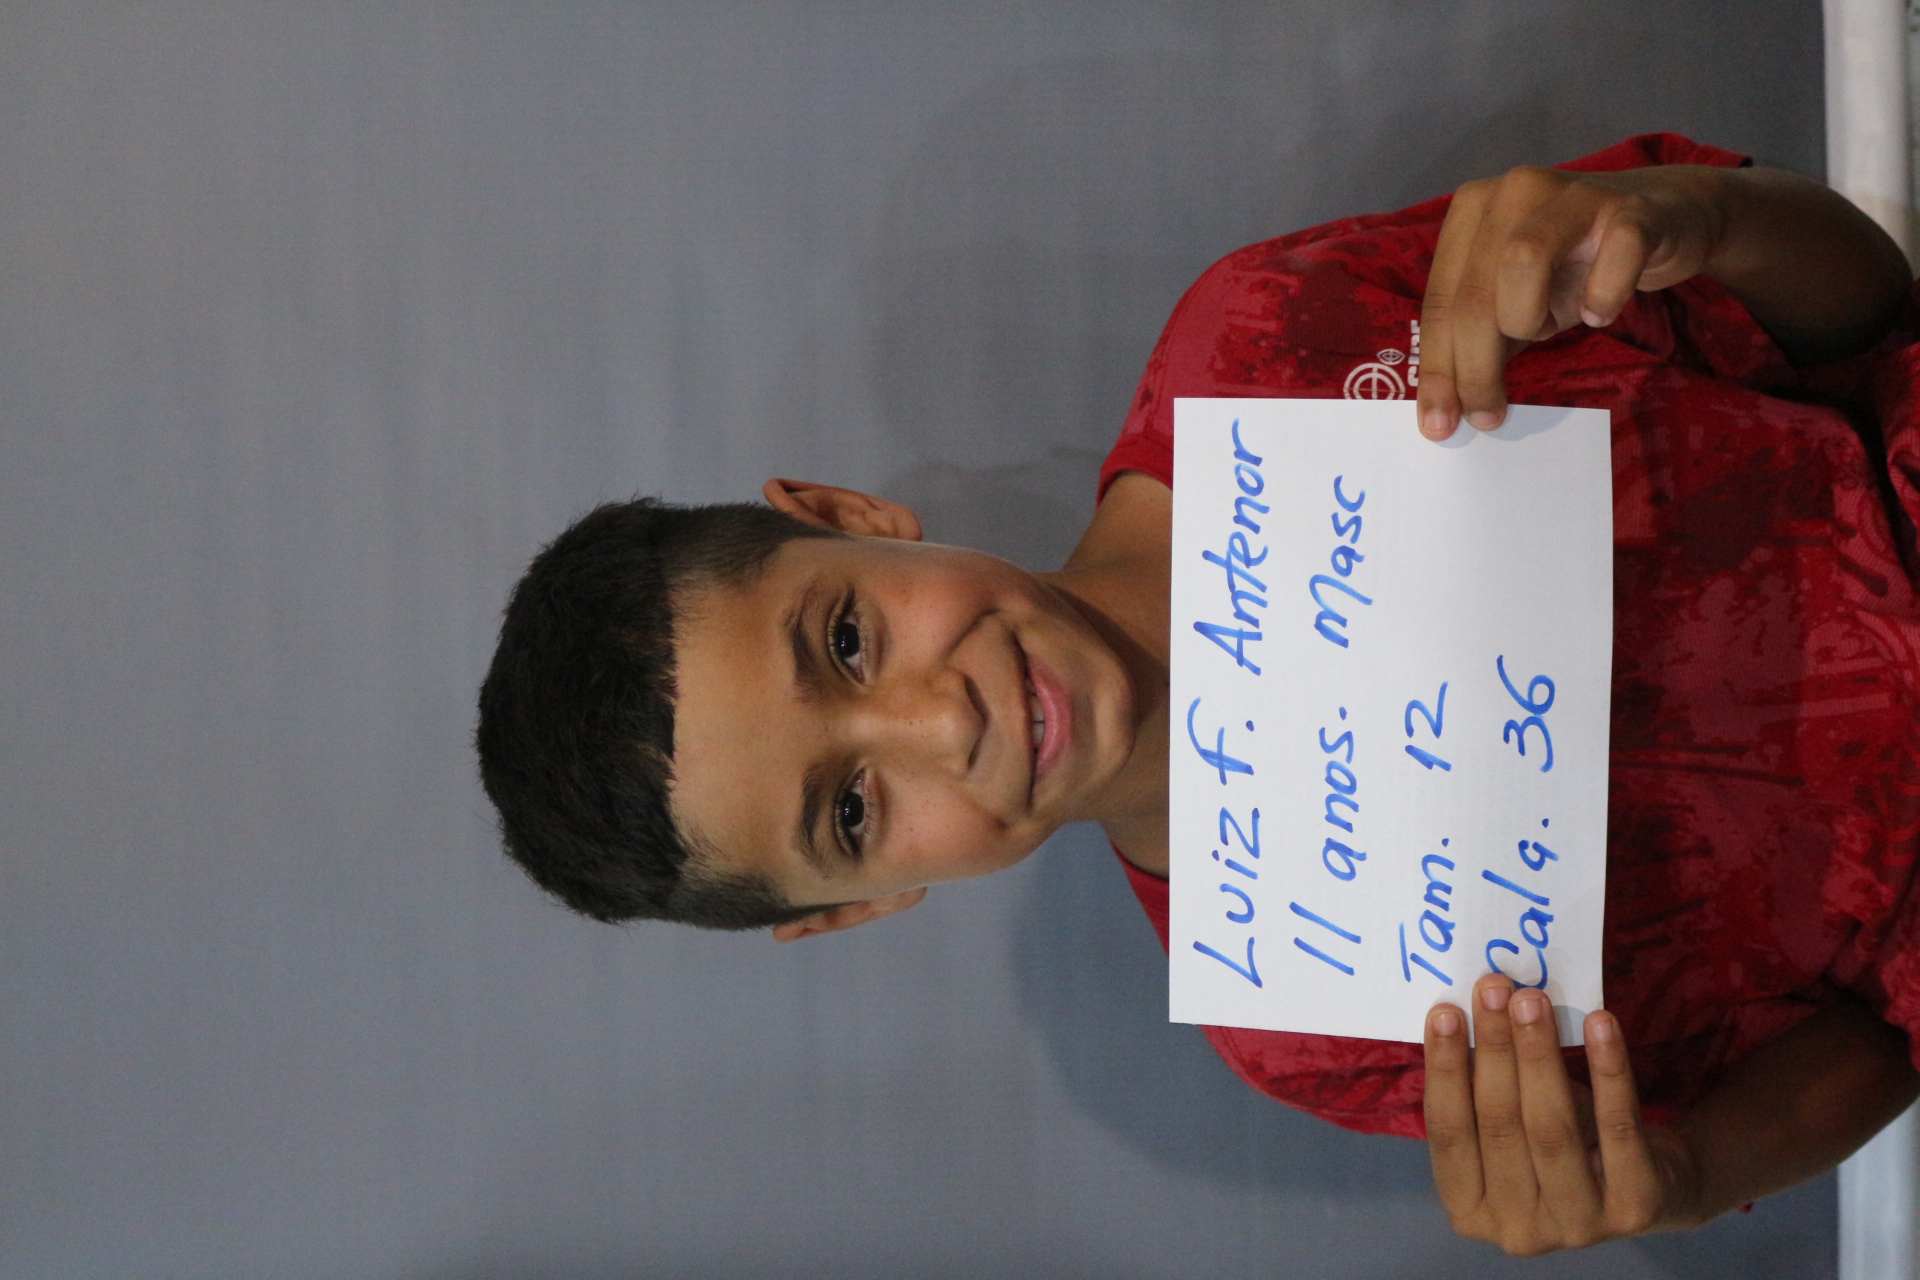 Luiz F. Antenor
11 anos. Masc
Tam. 12
Calç. 36